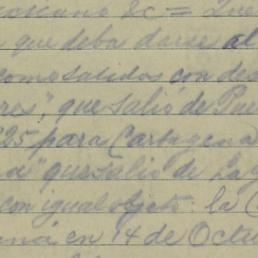 que deba darse al
como salidos con des
res", que salió de Puer
25 para Cartagena
a" que salió de La G
con igual objeto: la C
aná en 14 de Octu